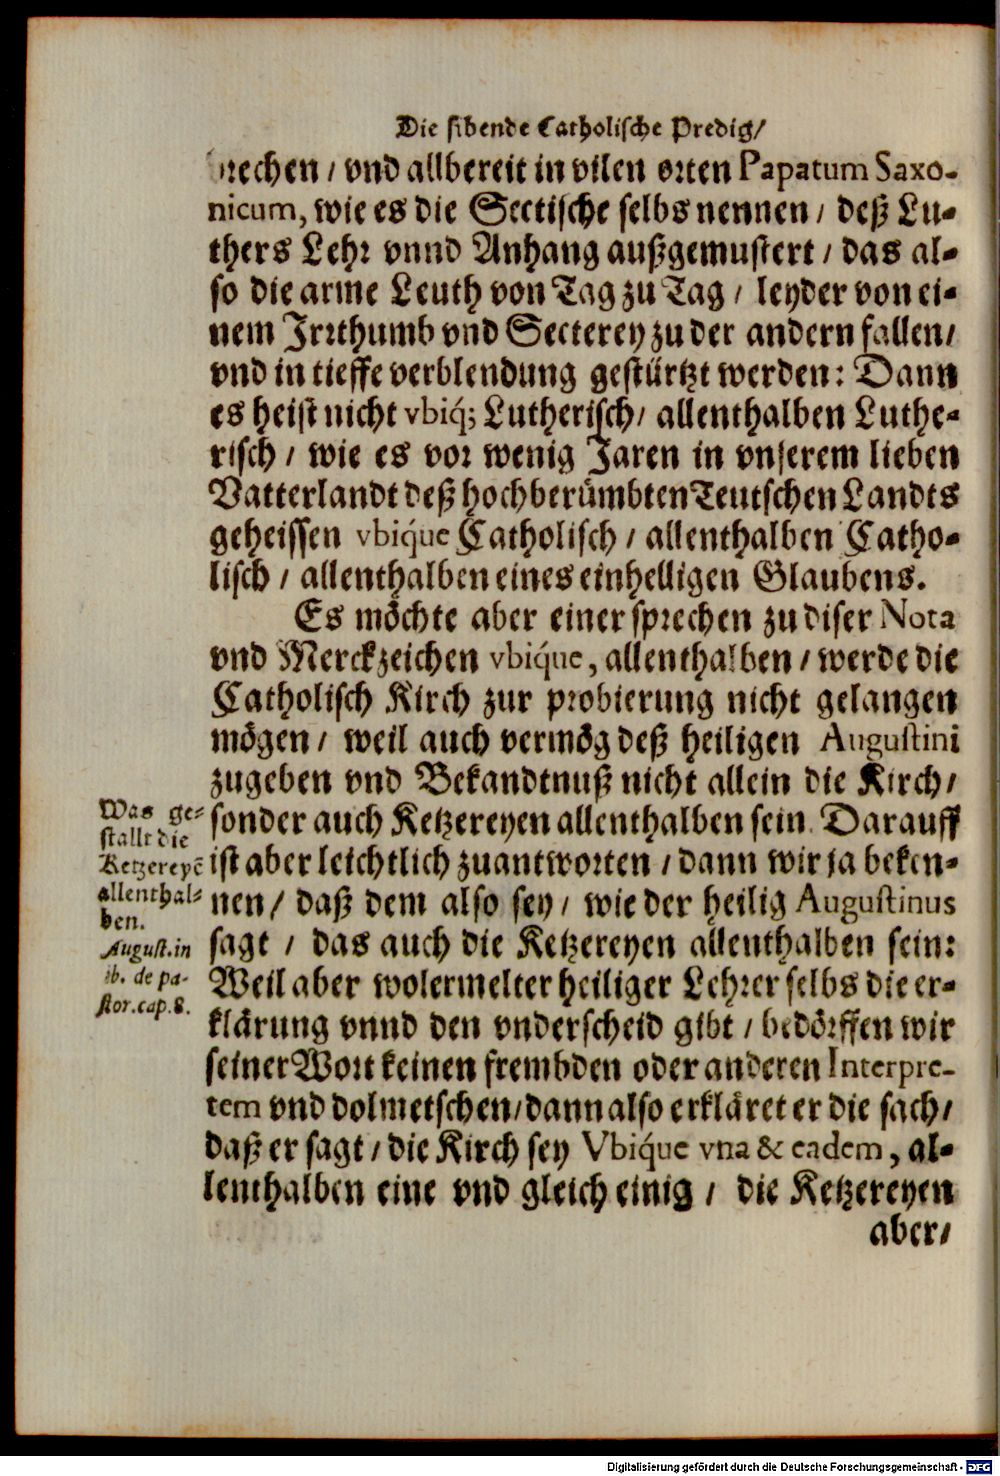 Die sibende Catholische Predig/
rechen / vnd allbereit in vilen orten Papatum Saxo-
nicum, wie es die Sectische selbs nennen / deß Lu-
thers Lehr vnnd Anhang außgemustert / das al-
so die arme Leuth von Tag zu Tag / leyder von ei-
nem Irrthumb vnd Secterey zu der andern fallen/
vnd in tieffe verblendung gestürtzt werden: Dann
es heist nicht vbiq́; Lutherisch/ allenthalben Luthe-
risch / wie es vor wenig Jaren in vnserem lieben
Vatterlandt deß hochberümbten Teutschen Landts
geheissen vbiq́ue Catholisch / allenthalben Catho-
lisch / allenthalben eines einhelligen Glaubens.
Es möchte aber einer sprechen zu diser Nota
vnd Merckzeichen vbiq́ue, allenthalben / werde die
Catholisch Kirch zur probierung nicht gelangen
mögen / weil auch vermög deß heiligen Augustini
zugeben vnd Bekandtnuß nicht allein die Kirch/
sonder auch Ketzereyen allenthalben sein. Darauff
ist aber leichtlich zuantworten / dann wir ja beken-
nen / daß dem also sey / wie der heilig Augustinus
sagt / das auch die Ketzereyen allenthalben sein:
Weil aber wolermelter heiliger Lehrer selbs die er-
klärung vnnd den vnderscheid gibt / bedörffen wir
seiner Wort keinen frembden oder anderen Interpre-
tem vnd dolmetschen/ dann also erkläret er die sach/
daß er sagt / die Kirch sey Vbiq́ue vna & eadem, al-
lenthalben eine vnd gleich einig / die Ketzereyen
aber/
Was ge-
stallt die
Ketzereyē
allenthal-
ben.
August. in
ib. de pa-
stor. cap. 8.
Digitalisierung gefördert durch die Deutsche Forschungsgemeinschaft - DFG